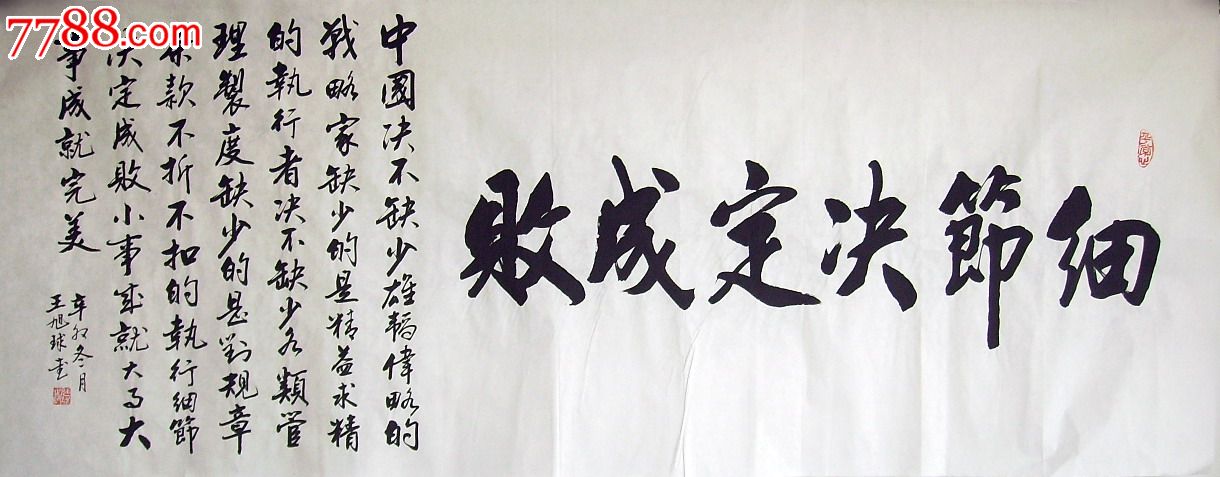 7788.com
細節决定成敗
中國决不缺少雄韜偉略的
戰略家缺少的是精益求精
的執行者决不缺少各類管
理製度缺少的是對規章
条款不折不扣的執行細節
决定成敗小事成就大事大
事成就完美
辛卯冬月
王旭球書